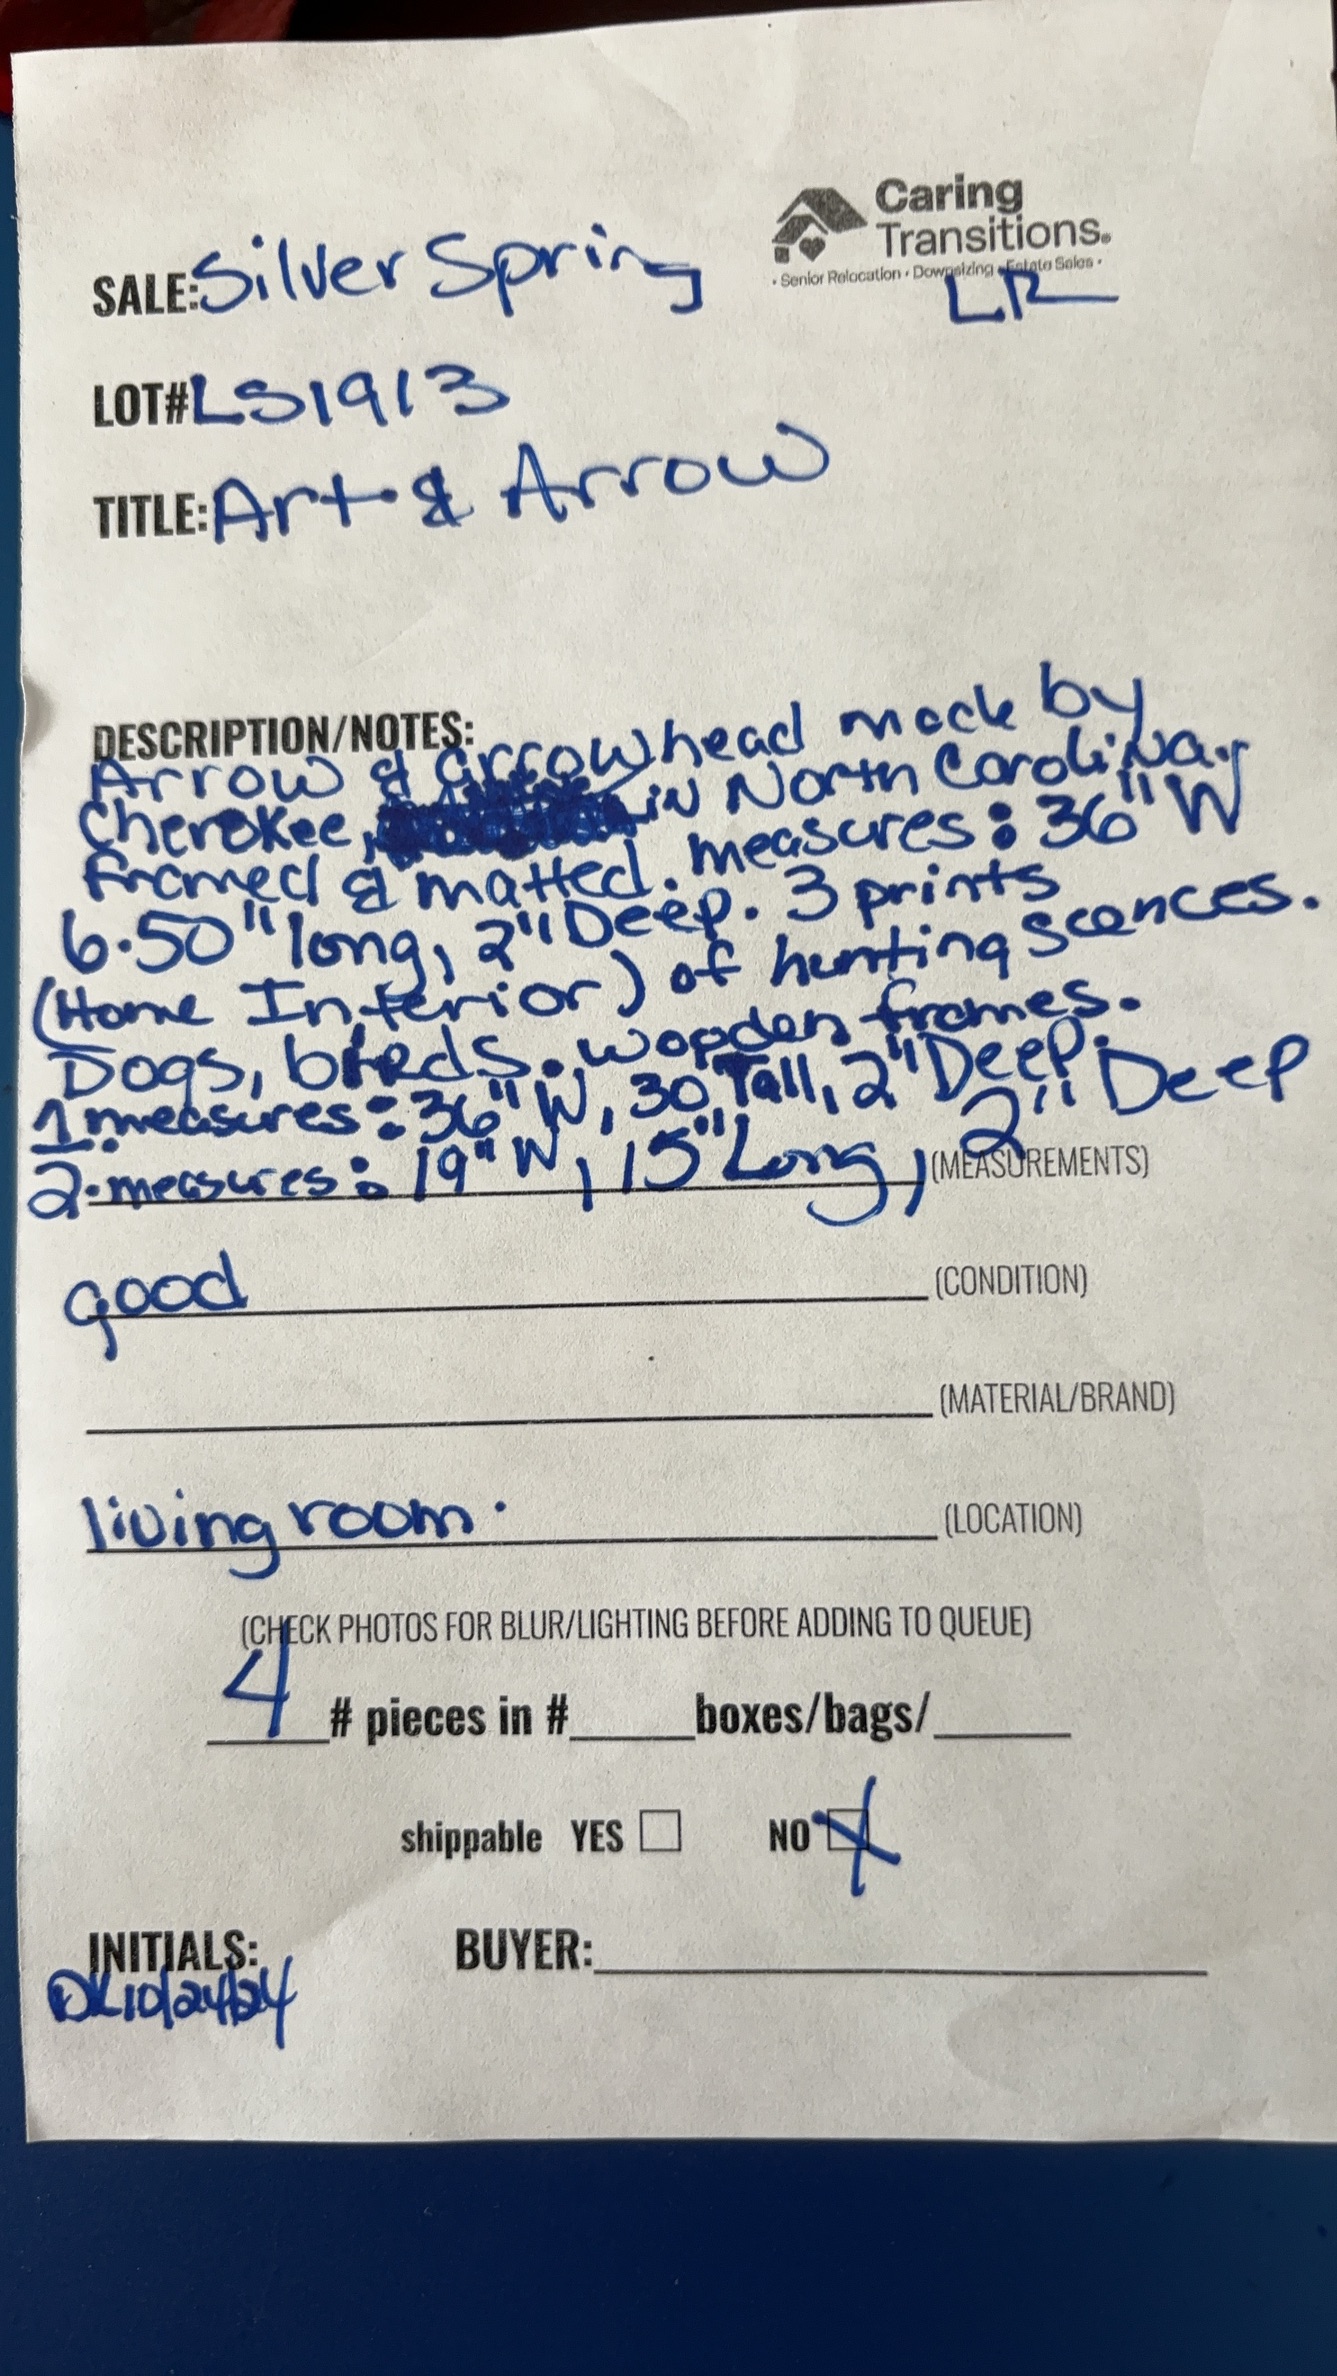 Caring
Transitions.
• Senior Relocation • Downsizing • Estate Sales •
LR
SALE: Silver Spring
LOT# LS1913
TITLE: Art & Arrow
DESCRIPTION/NOTES:
Arrow & arrowhead made by
Cherokee, in North Carolina.
framed & matted. measures: 36" W
6.50" long, 2" Deep. 3 prints
(Home Interior) of hunting scences.
Dogs, birds. wooden frames.
1 measures: 36" W, 30 Tall, 2" Deep.
2. measures: 19" W, 15" Long, 2" Deep
(MEASUREMENTS)
good (CONDITION)
(MATERIAL/BRAND)
living room. (LOCATION)
(CHECK PHOTOS FOR BLUR/LIGHTING BEFORE ADDING TO QUEUE)
4 # pieces in # boxes/bags/
shippable YES NO X
INITIALS: BUYER:
DK 10/24/24